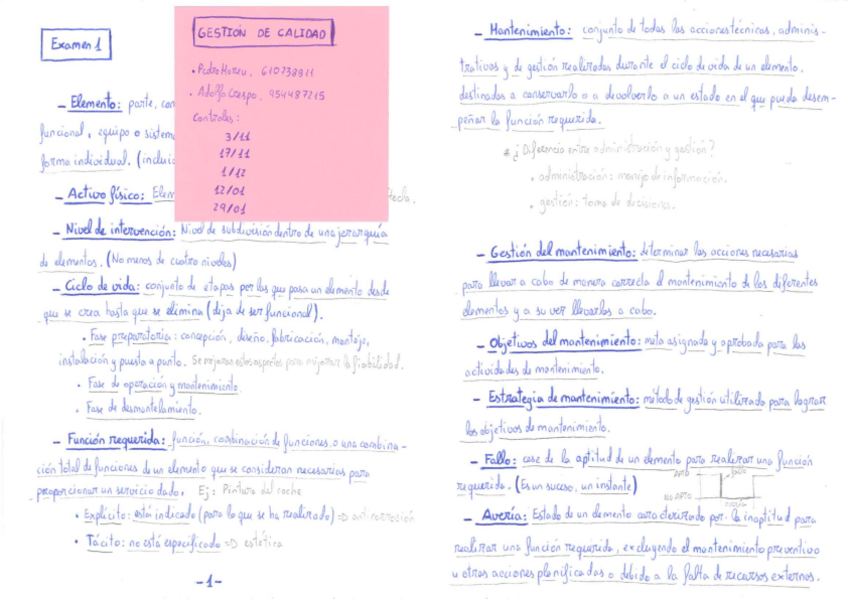 Examen 1
GESTIÓN DE CALIDAD
Controles:
3/11
17/11
1/12
12/01
29/01
- Elemento: parte,
funcional, equipo o sistem
forma individual. (inclui
- Activo físico: Elem
- Nivel de intervención: Nivel de subdivisión dentro de una jerarquía
de elementos. (No menos de cuatro niveles)
- Ciclo de vida: conjunto de etapas por las que pasa un elemento desde
que se crea hasta que se elimina (deja de ser funcional).
• Fase preparatoria: concepción, diseño, fabricación, montaje,
instalación y puesta a punto. Se mejoran estos aspectos para mejorar la fiabilidad.
• Fase de operación y mantenimiento.
• Fase de desmantelamiento.
- Función requerida: función, combinación de funciones, o una combina-
ción total de funciones de un elemento que se consideran necesarias para
proporcionar un servicio dado. Ej: Pintura del coche
• Explícito: está indicado (para lo que se ha realizado) => anticorrosión
• Tácito: no está especificado => estética
-1-
- Mantenimiento: conjunto de todas las acciones técnicas, adminis-
trativas y de gestión realizadas durante el ciclo de vida de un elemento,
destinadas a conservarlo o a devolverlo a un estado en el que pueda desem-
peñar la función requerida.
* ¿Diferencia entre administración y gestión?
• administración: manejo de información.
• gestión: toma de decisiones.
- Gestión del mantenimiento: determinar las acciones necesarias
para llevar a cabo de manera correcta el mantenimiento de los diferentes
elementos y a su vez llevarlas a cabo.
- Objetivos del mantenimiento: meta asignada y aprobada para las
actividades de mantenimiento.
- Estrategia de mantenimiento: método de gestión utilizado para lograr
los objetivos de mantenimiento.
- Fallo: cese de la aptitud de un elemento para realizar una función
requerida. (Es un suceso, un instante)
APTO
fallo
NO APTO
- Avería: Estado de un elemento caracterizado por la inaptitud para
realizar una función requerida, excluyendo el mantenimiento preventivo
u otras acciones planificadas o debido a la falta de recursos externos.